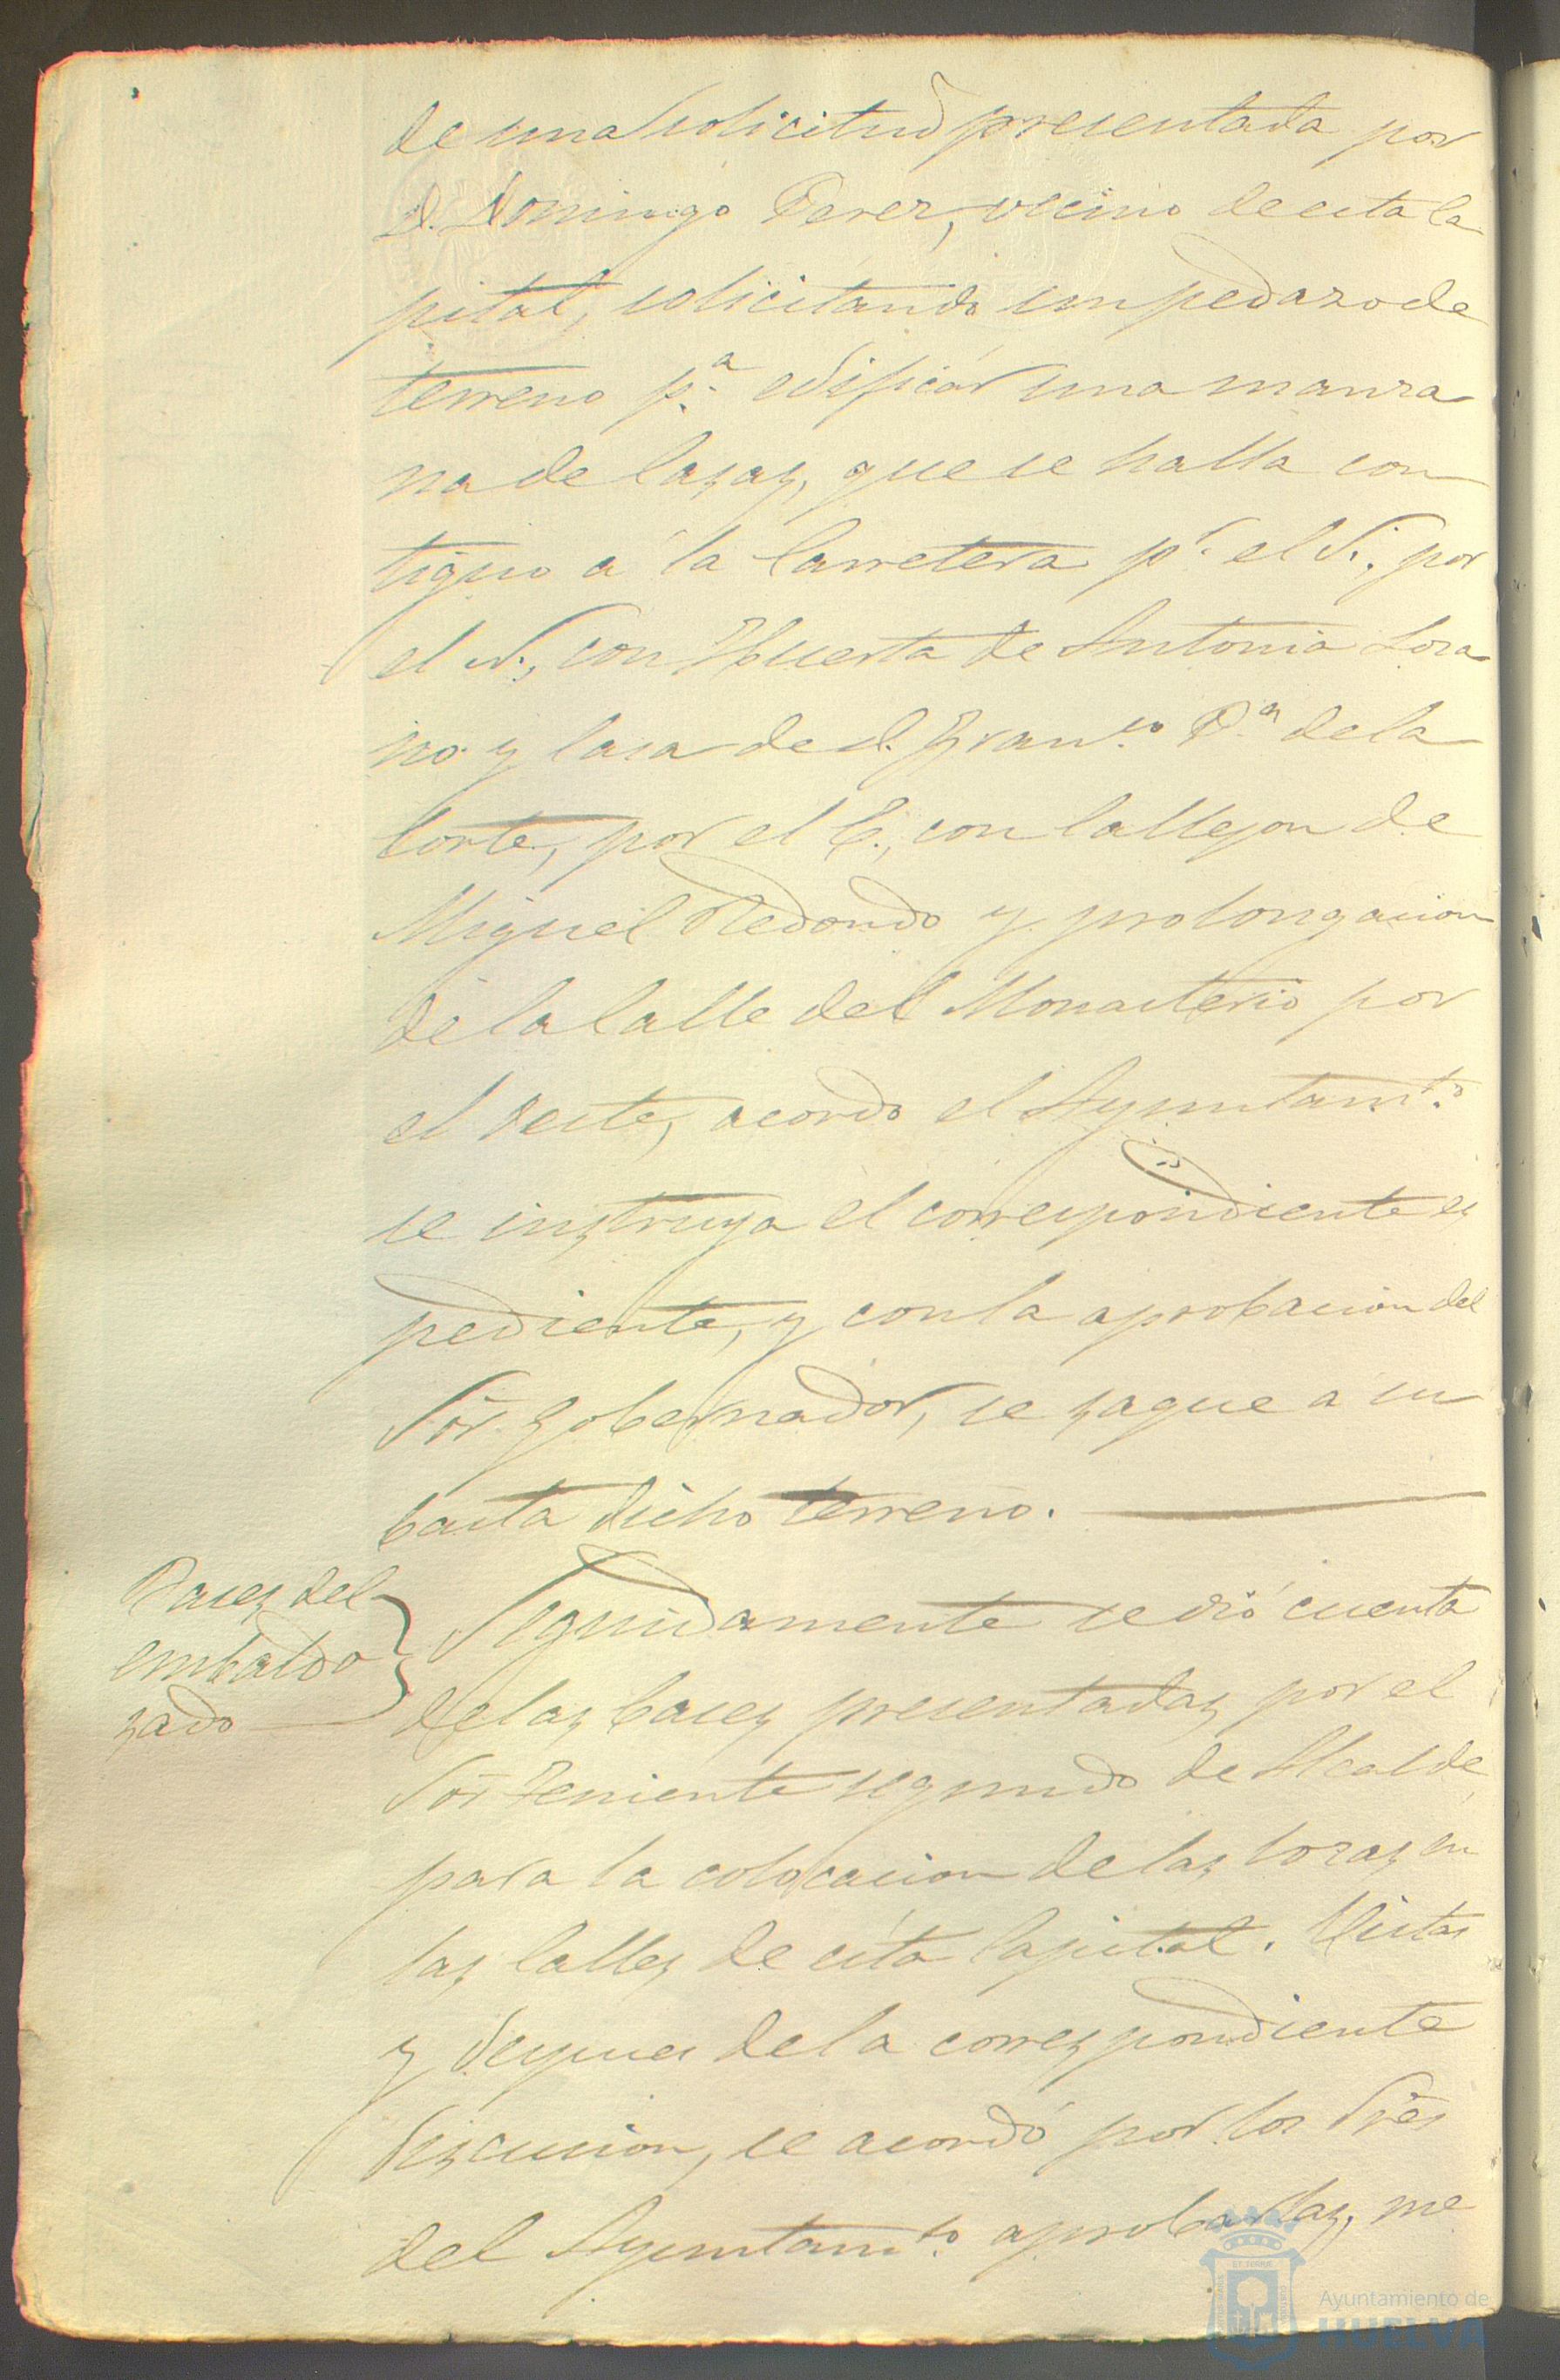 de una solicitud presentada por
D. Domingo Perez, vecino de esta Ca
pital, solicitando un pedazo de
terreno p.ª edificar una manza
na de Casas, que se halla con
tiguo a la Carretera p.r el S., por
el N., con Huerta de Antonia Loza
no y Casa de D. Fran.co de la
Corte, por el E., con Callejon de
Miguel Redondo y prolongacion
de la Calle del Monasterio por
el Oeste, acordó el Ayuntam.to
se instruya el correspondiente es
pediente, y con la aprobacion del
Sõr. Gobernador, se saque a su
basta dicho terreno.
Bases del
embaldo
sado
Seguidamente se dió cuenta
de las bases presentadas por el
Sõr Teniente segundo de Alcalde,
para la colocacion de las lozas en
las Calles de esta Capital. Vistas
y despues de la correspondiente
discucion, se acordó por los Sres
del Ayuntam.to aprobarlas, me
Ayuntamiento de
HUELVA